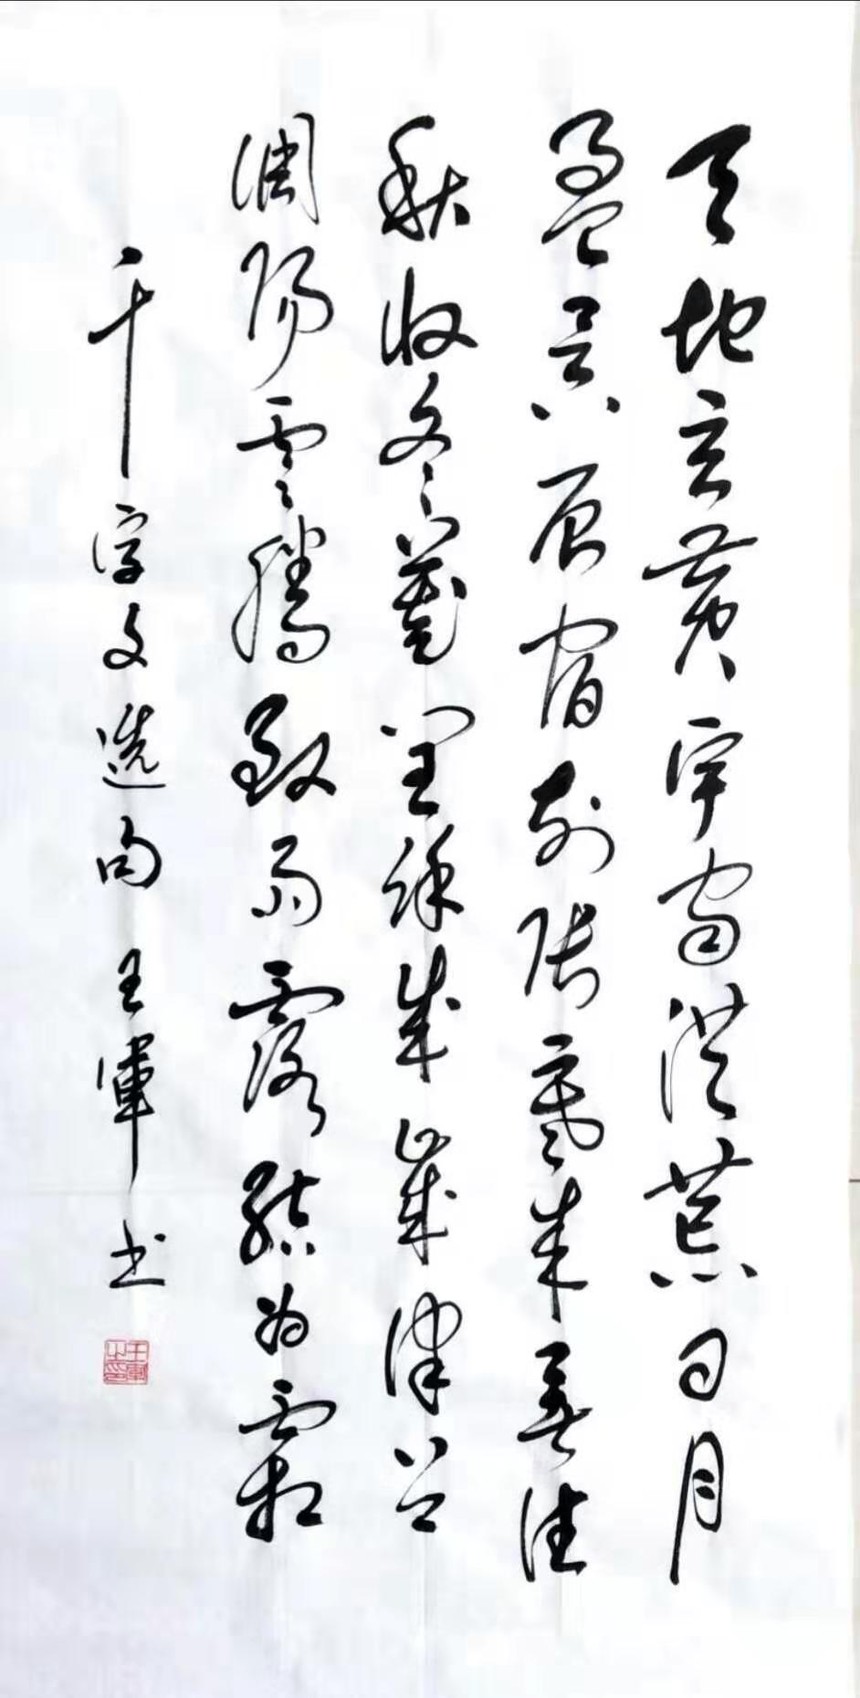 天地玄黄宇宙洪荒日月
盈昃辰宿列張寒来暑往
秋收冬藏閏餘成歲律吕
調陽雲騰致雨露結为霜
千字文選句 王軍书
王軍之印